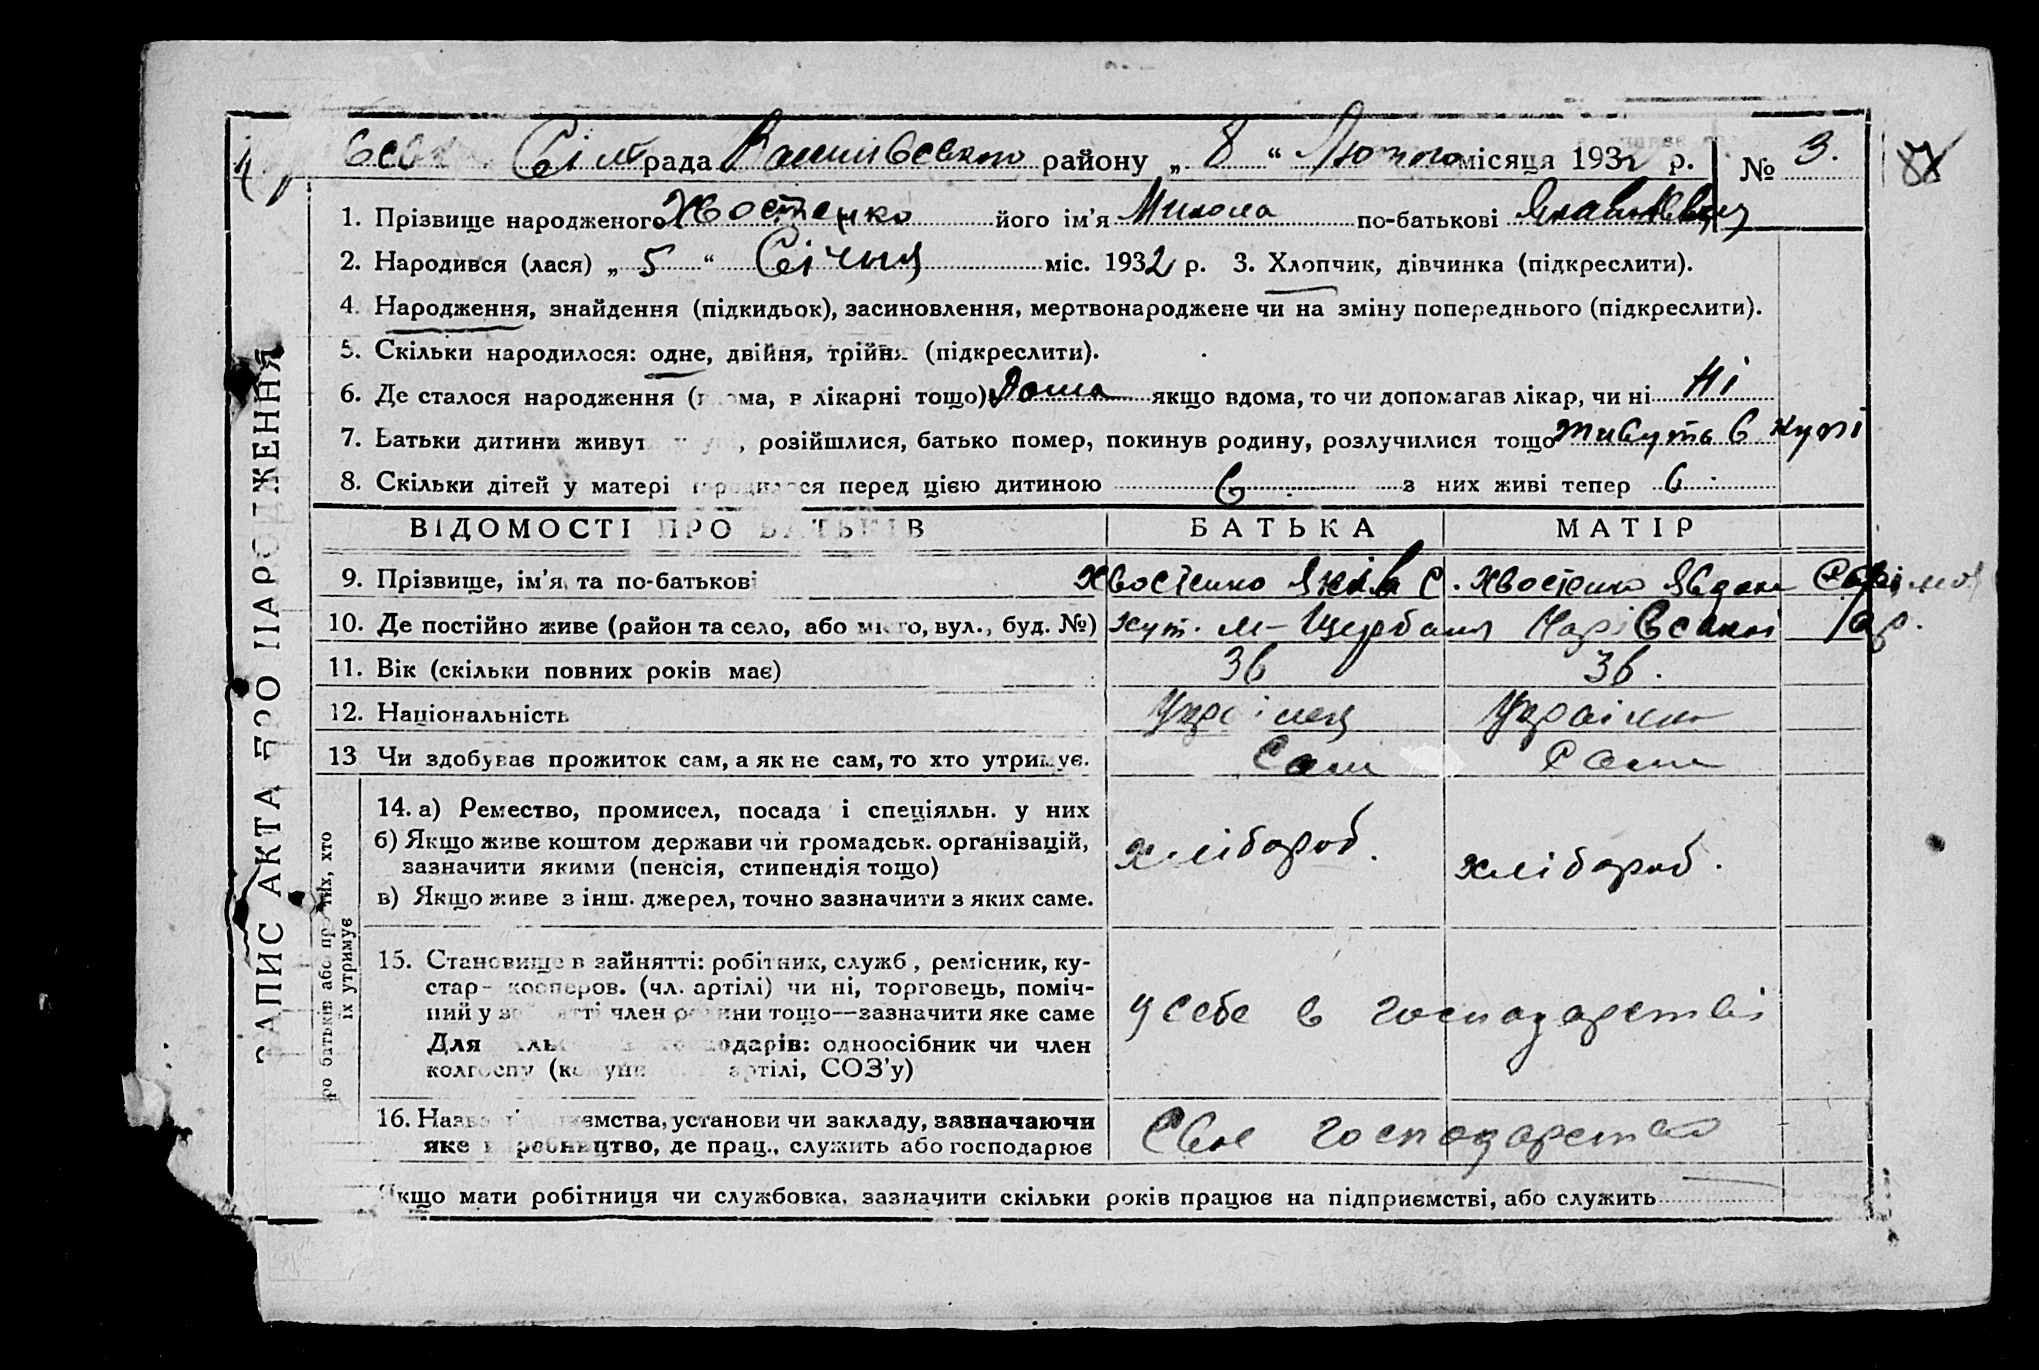 Сіл рада Ваписівського району „ 8 “ Лютого місяця 1932 р. № 3.
1. Прізвище народженого Хвостенко його ім’я Микола по-батькові
2. Народився (лася) „ 5 “ Січня міс. 1932 р. 3. Хлопчик, дівчинка (підкреслити).
4. Народження, знайдення (підкидьок), засиновлення, мертвонароджене чи на зміну попереднього (підкреслити).
5. Скільки народилося: одне, двійня, трійня (підкреслити).
6. Де сталося народження (вдома, в лікарні тощо) Дома якщо вдома, то чи допомагав лікар, чи ні Ні
7. Батьки дитини живуть , розійшлися, батько помер, покинув родину, розлучилися тощо живуть в купі
8. Скільки дітей у матері народилося перед цією дитиною 6 з них живі тепер 6
ВІДОМОСТІ ПРО БАТЬКІВ БАТЬКА МАТІР
9. Прізвище, ім’я та по-батькові Хвостенко Яків С. Хвостенко Явдоха
10. Де постійно живе (район та село, або місто, вул., буд. №) хут. М-Щербани
11. Вік (скільки повних років має) 36 36.
12. Національність Українец Українка
13 Чи здобував прожиток сам, а як не сам, то хто утримує. Сам Сама
14. а) Ремество, промисел, посада і спеціяльн. у них
б) Якщо живе коштом держави чи громадськ. організацій,
зазначити якими (пенсія, стипендія тощо)
хлібороб. хлібороб.
в) Якщо живе з інш. джерел, точно зазначити з яких саме.
15. Становище в зайнятті: робітник, служб , ремісник, ку-
стар- кооперов. (чл. артілі) чи ні, торговець, поміч-
ний у зайнятті член родини тощо—зазначити яке саме
у себе в господарстві
Для господарів: одноосібник чи член
колгоспу ( артілі, СОЗ’у)
16. Назва підприємства, установи чи закладу, зазначаючи
яке виробництво, де прац., служить або господарює
Своє господарство
Якщо мати робітниця чи службовка, зазначити скільки років працює на підприємстві, або служить
ЗАПИС АКТА ПРО НАРОДЖЕННЯ
про батьків або про тих, хто
їх утримує